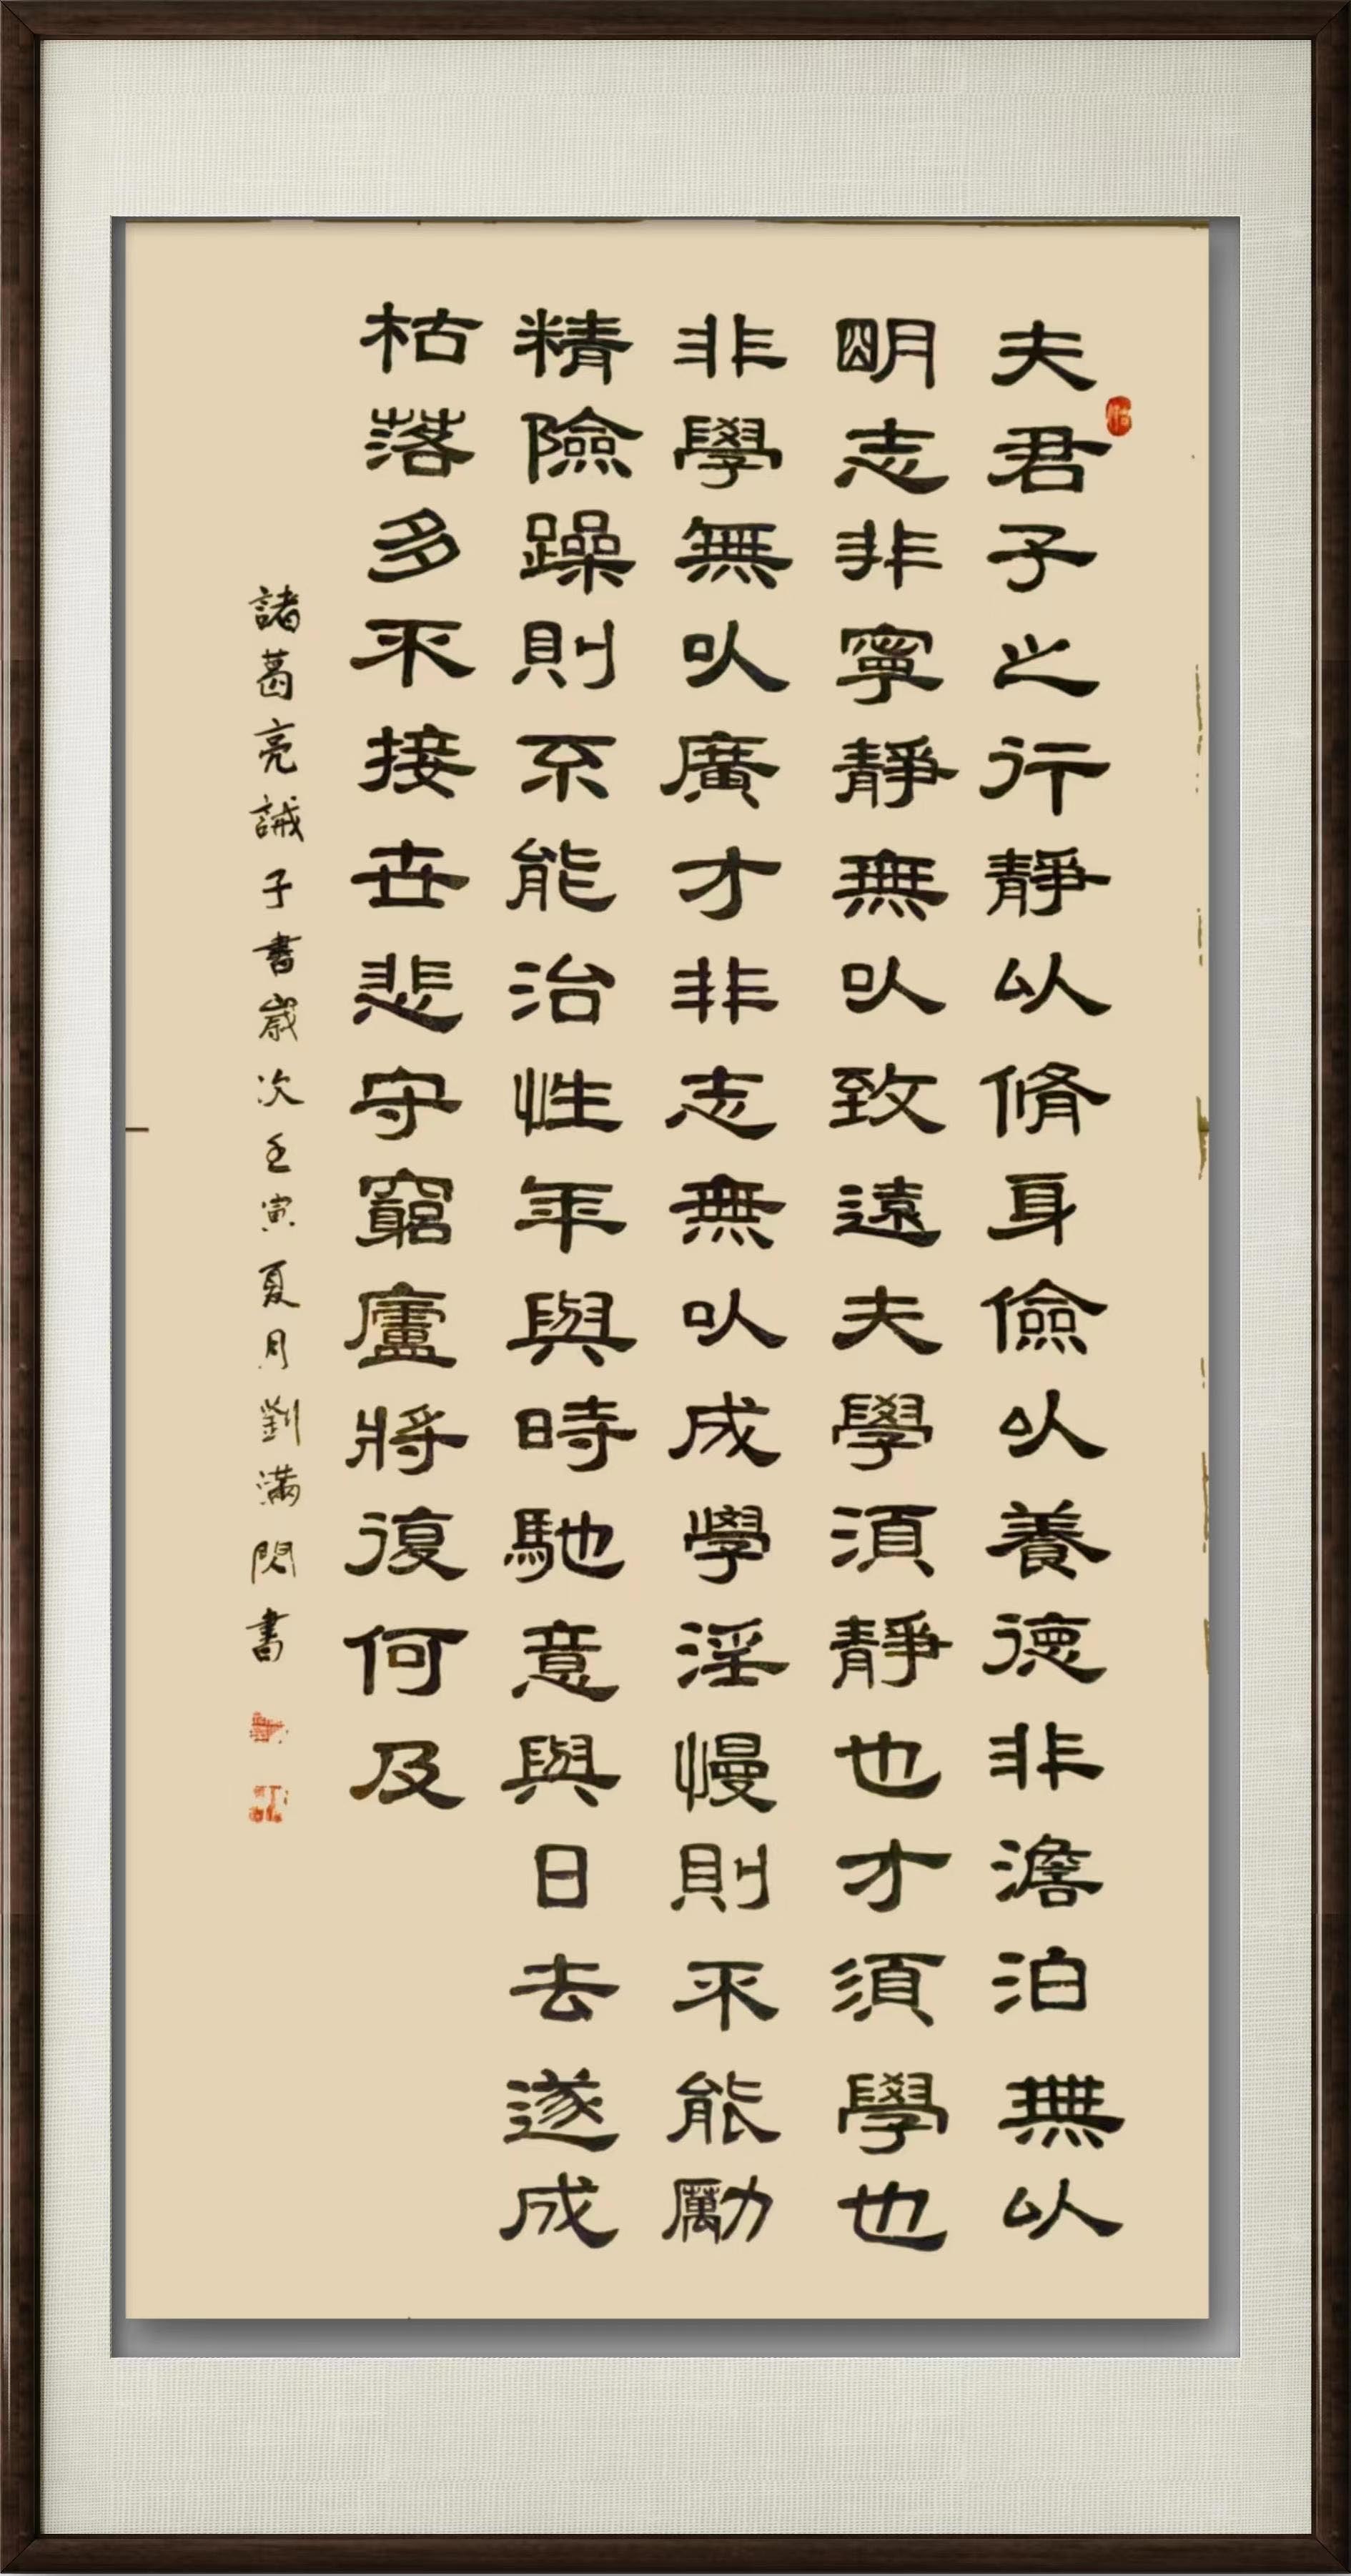 夫君子之行靜以脩身儉以養德非澹泊無以
明志非寧靜無以致遠夫學須靜也才須學也
非學無以廣才非志無以成學淫慢則不能勵
精險躁則不能治性年與時馳意與日去遂成
枯落多不接世悲守窮廬將復何及
諸葛亮誡子書歲次壬寅夏月劉滿閃書